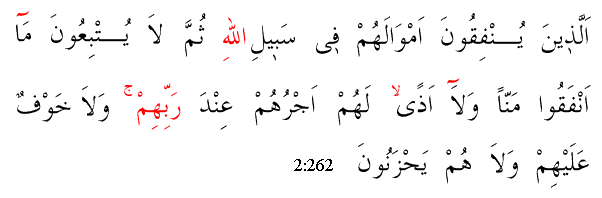 اَلَّذٖينَ يُنْفِقُونَ اَمْوَالَهُمْ فٖى سَبٖيلِ اللهِ ثُمَّ لَا يُتْبِعُونَ مَٓا
اَنْفَقُوا مَنّاً وَلَٓا اَذًىۙ لَهُمْ اَجْرُهُمْ عِنْدَ رَبِّهِمْۚ وَلَا خَوْفٌ
عَلَيْهِمْ وَلَا هُمْ يَحْزَنُونَ 2:262